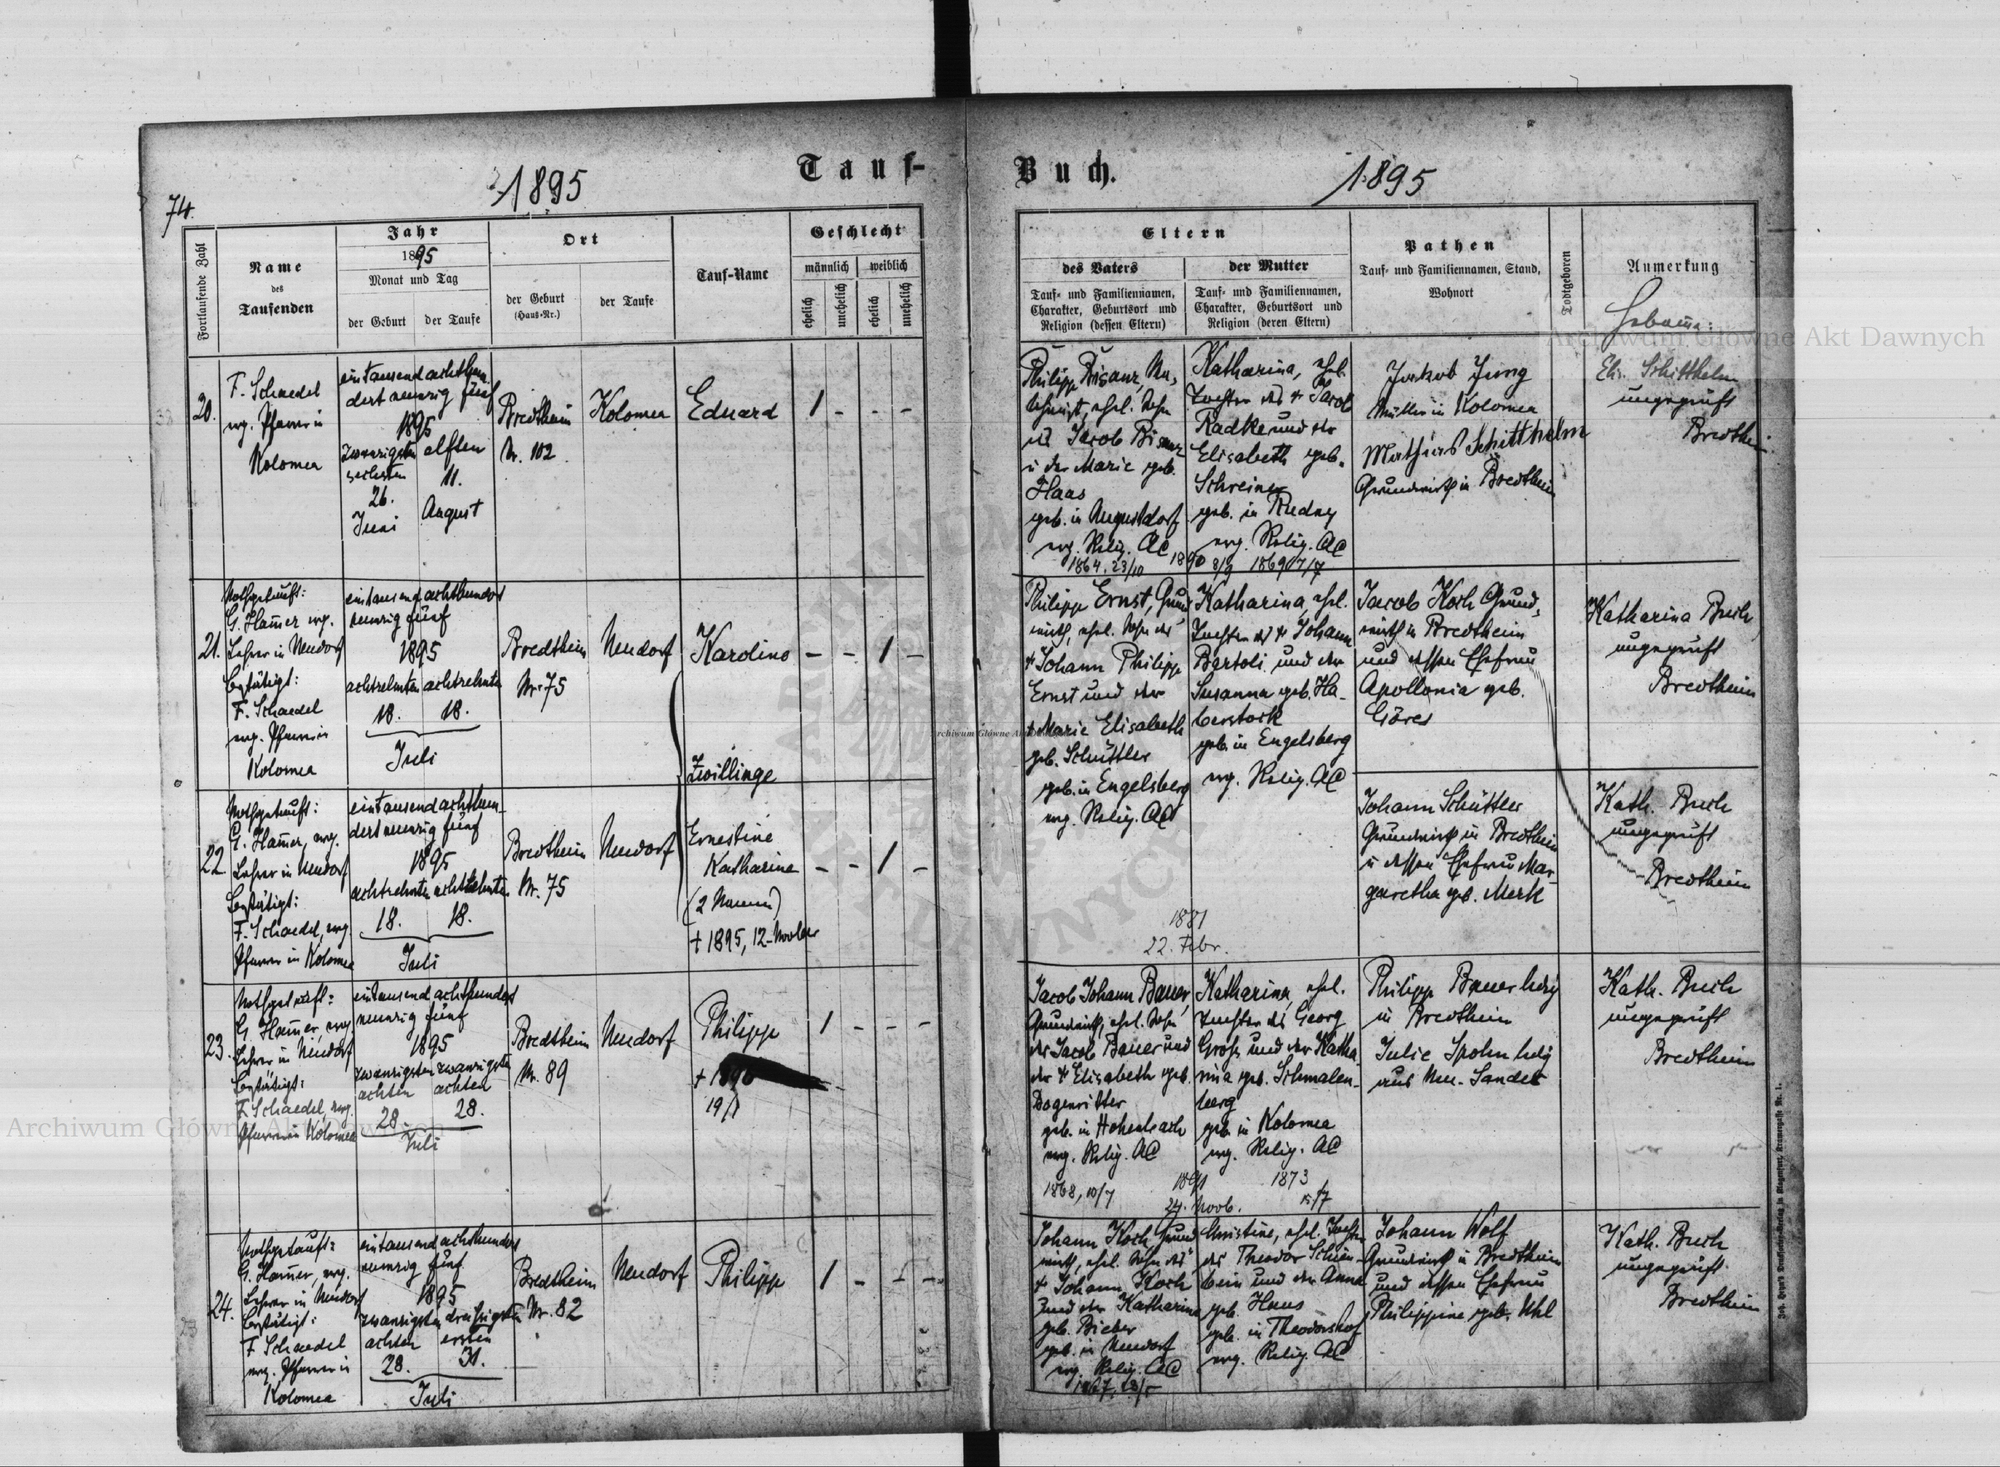 74.
1895
Tauf-
Buch.
1895
Fortlaufende Zahl
Name
des
Taufenden
Jahr
1895
Monat und Tag
der Geburt
der Taufe
Ort
der Geburt
(Haus-Nr.)
der Taufe
Tauf-Name
Geschlecht
männlich
weiblich
ehelich
unehelich
ehelich
unehelich
Eltern
des Vaters
Tauf- und Familiennamen,
Charakter, Geburtsort und
Religion (dessen Eltern)
der Mutter
Tauf- und Familiennamen,
Charakter, Geburtsort und
Religion (deren Eltern)
Pathen
Tauf- und Familiennamen, Stand,
Wohnort
Todtgeboren
Anmerkung
20.
F. Schaedel
evg. Pfarrer in
Kolomea
eintausend achthun-
dert neunzig fünf
1895
zwanzigsten
sechsten
26.
Juni
elften
11.
August
Bredtheim
Nr. 102
Kolomea
Eduard
1 - - -
Philipp Bisanz,
ehel. Sohn
des Jacob Bisanz
u der Marie geb.
Haas
geb. in Augustdorf
evg. Relig. AC
1864, 23/10
1890 8/9
Katharina, ehel.
Tochter des + Jacob
Radke und der
Elisabeth geb.
Schreiner
geb. in
evg. Relig. AC
1869 7/7
Jakob Jung
Müller in Kolomea
Mathias Schitthelm
Grundwirth in Bredtheim
Elis. Schitthelm
ungeprüft
Bredtheim
21.
Nothgetauft:
G. Hamer evg.
Lehrer in Neudorf
bestätigt:
F. Schaedel
evg. Pfarrer in
Kolomea
eintausend achthundert
neunzig fünf
1895
achtzehnten achtzehnten
18. 18.
Juli
Bredtheim
Nr. 75
Neudorf
Karoline
- - 1 -
Zwillinge
Philipp Ernst, Grund-
wirth, ehel. Sohn des
+ Johann Philipp
Ernst und der
+ Marie Elisabeth
geb. Schüttler
geb. in Engelsberg
evg. Relig. AC
Katharina, ehel.
Tochter des + Johann
Bartoli und der
Susanna geb. Ha-
berstock
geb. in Engelsberg
evg. Relig. AC
Jacob Koch Grund-
wirth in Bredtheim
und dessen Ehefrau
Apollonia geb.
Göres
Katharina Buch
ungeprüft
Bredtheim
22
Nothgetauft:
G. Hamer, evg.
Lehrer in Neudorf
bestätigt:
F. Schaedel, evg.
Pfarrer in Kolomea
eintausend achthun-
dert neunzig fünf
1895
achtzehnten achtzehnten
18. 18.
Juli
Bredtheim
Nr. 75
Neudorf
Ernestine
Katharina
(2 Namen)
+ 1895, 12-November
- - 1 -
1881
22. Febr.
Johann Schüttler
Grundwirth in Bredtheim
u dessen Ehefrau Mar-
garetha geb. Merk
Kath. Buch
ungeprüft
Bredtheim
23.
Nothgetauft:
G. Hamer, evg.
Lehrer in Neudorf
bestätigt:
F. Schaedel, evg.
Pfarrer in Kolomea
eintausend achthundert
neunzig fünf
1895
zwanzigsten zwanzigsten
achten achten
28. 28.
Juli
Bredtheim
Nr. 89
Neudorf
Philipp
19/1
1 - - -
Jacob Johann Bauer,
Grundwirth, ehel. Sohn
des Jacob Bauer und
der + Elisabeth geb.
geb. in Hohenbach
evg. Relig. AC
1868, 10/7
24. Novb.
Katharina, ehel.
Tochter des Georg
Groß und der Katha-
rina geb. Schmalen-
berg
geb. in Kolomea
evg. Relig. AC
1873
15/7
Philipp Bauer ledig
in Bredtheim
Julie Spohn ledig
aus Neu-Sandez
Kath. Buch
ungeprüft
Bredtheim
24.
Nothgetauft:
G. Hamer, evg.
Lehrer in Neudorf
bestätigt:
F. Schaedel
evg. Pfarrer in
Kolomea
eintausend achthundert
neunzig fünf
1895
zwanzigsten dreißigsten
achten ersten
28. 31.
Juli
Bredtheim
Nr. 82
Neudorf
Philipp
1 - - -
Johann Koch Grund-
wirth, ehel. Sohn des
+ Johann Koch
und der Katharina
geb. Bieber
geb. in Neudorf
evg. Relig. AC
Christine, ehel. Tochter
des Theodor Schön-
bein und der Anna
geb. Haus
geb. in Theodorshof
evg. Relig. AC
Johann Wolf
Grundwirth in Bredtheim
und dessen Ehefrau
Philippine geb. Uhl
Kath. Buch
ungeprüft
Bredtheim
Archiwum Główne Akt Dawnych
Archiwum Główne Akt Dawnych